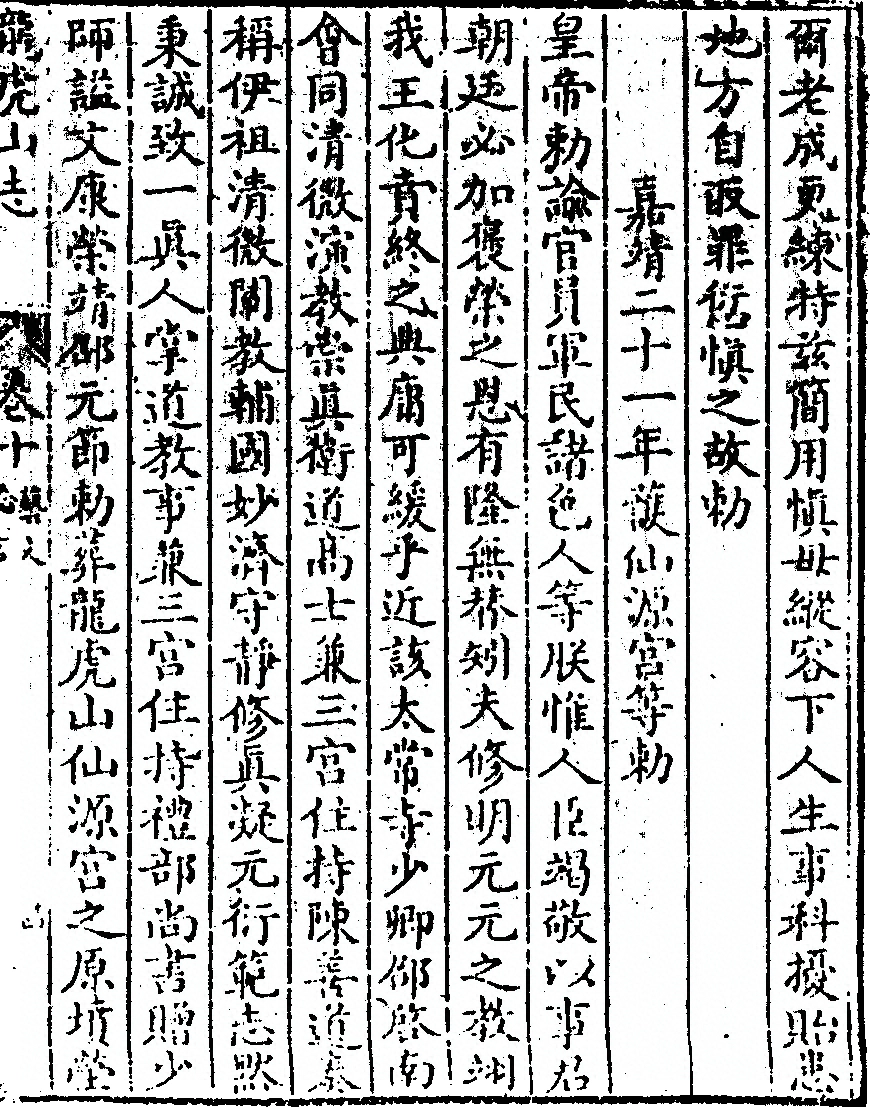 爾老成更練特茲簡用愼毋縱容下人生事科擾貽患
地方自取罪愆愼之故勅
嘉靖二十一年護仙源宮等勅
皇帝勅諭官員軍民諸色人等朕惟人臣竭敬以事君
朝廷必加褒榮之恩有隆無替矧夫修明元元之教翊
我王化賁終之典庸可緩乎近該太常寺少卿邵啓南
會同清微演教崇眞衛道高士兼三宮住持陳善道奏
稱伊祖清微闡教輔國妙濟守靜修眞凝元衍範志默
秉誠致一眞人掌道教事兼三宮住持禮部尚書贈少
師謚文康榮靖邵元節勅葬龍虎山仙源宮之原墳塋
龍虎山志
卷十
藝文